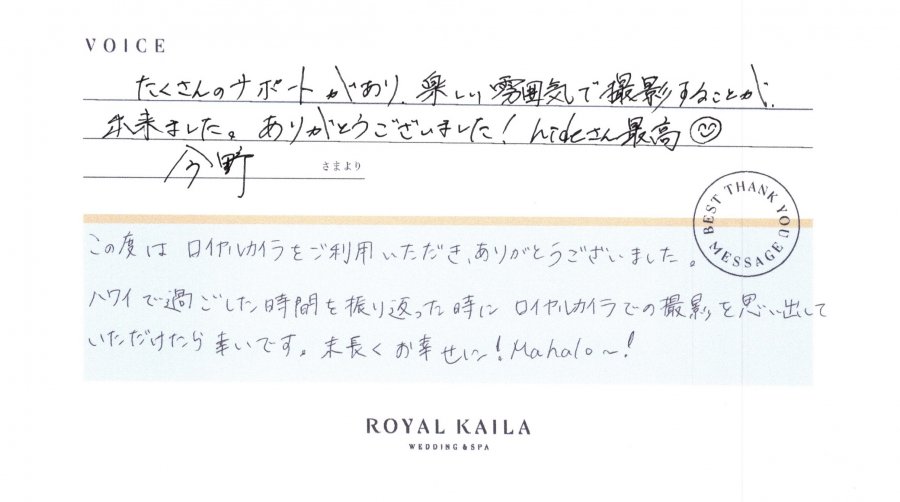 VOICE
たくさんのサポートがあり、楽しい雰囲気で撮影することが、
出来ました。ありがとうございました！hideさん最高
今野 さまより
BEST THANK YOU
MESSAGE
この度はロイヤルカイラをご利用いただき、ありがとうございました。
ハワイで過ごした時間を振り返った時にロイヤルカイラでの撮影を思い出して
いただけたら幸いです。末長くお幸せに！Mahalo~!
ROYAL KAILA
WEDDING & SPA